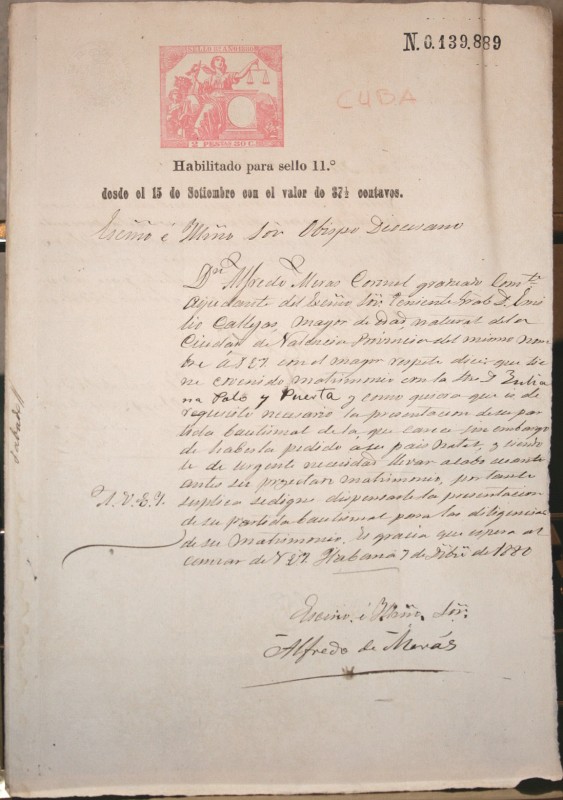 N. 0.139.889
SELLO 11º AÑO 1880
2 PESOS 50 C.
CUBA
Habilitado para sello 11.º
desde el 15 de Setiembre con el valor de 37½ centavos.
Escmo é Illmo Sor Obispo Diocesano
Dn Alfredo Meras Coronel graduado Comte
Ayudante del Escmo Sor Teniente Gral D. Emi
lio Callejas, mayor de edad, natural de la
Ciudad de Valencia Provincia del mismo nom
bre á V.E.I. con el mayor respeto dice: que tie
ne convenido matrimonio con la Sta Da Julia
na Polo y Puerta y como quiera que es de
requisito necesario la presentacion de su par
tida bautismal de la que carece sin embargo
de haberla pedido a su pais natal, y siendo
le de urgente necesidad llevar a cabo cuanto
antes su proyectado matrimonio, por tanto
A. V. E. I.
suplica se digne dispensarle la presentacion
de su partida bautismal para las diligencias
de su matrimonio. Es gracia que espera al
canzar de V.E.I. Habana 7 de 1880
Escmo é Illmo Sor.
Alfredo de Merás